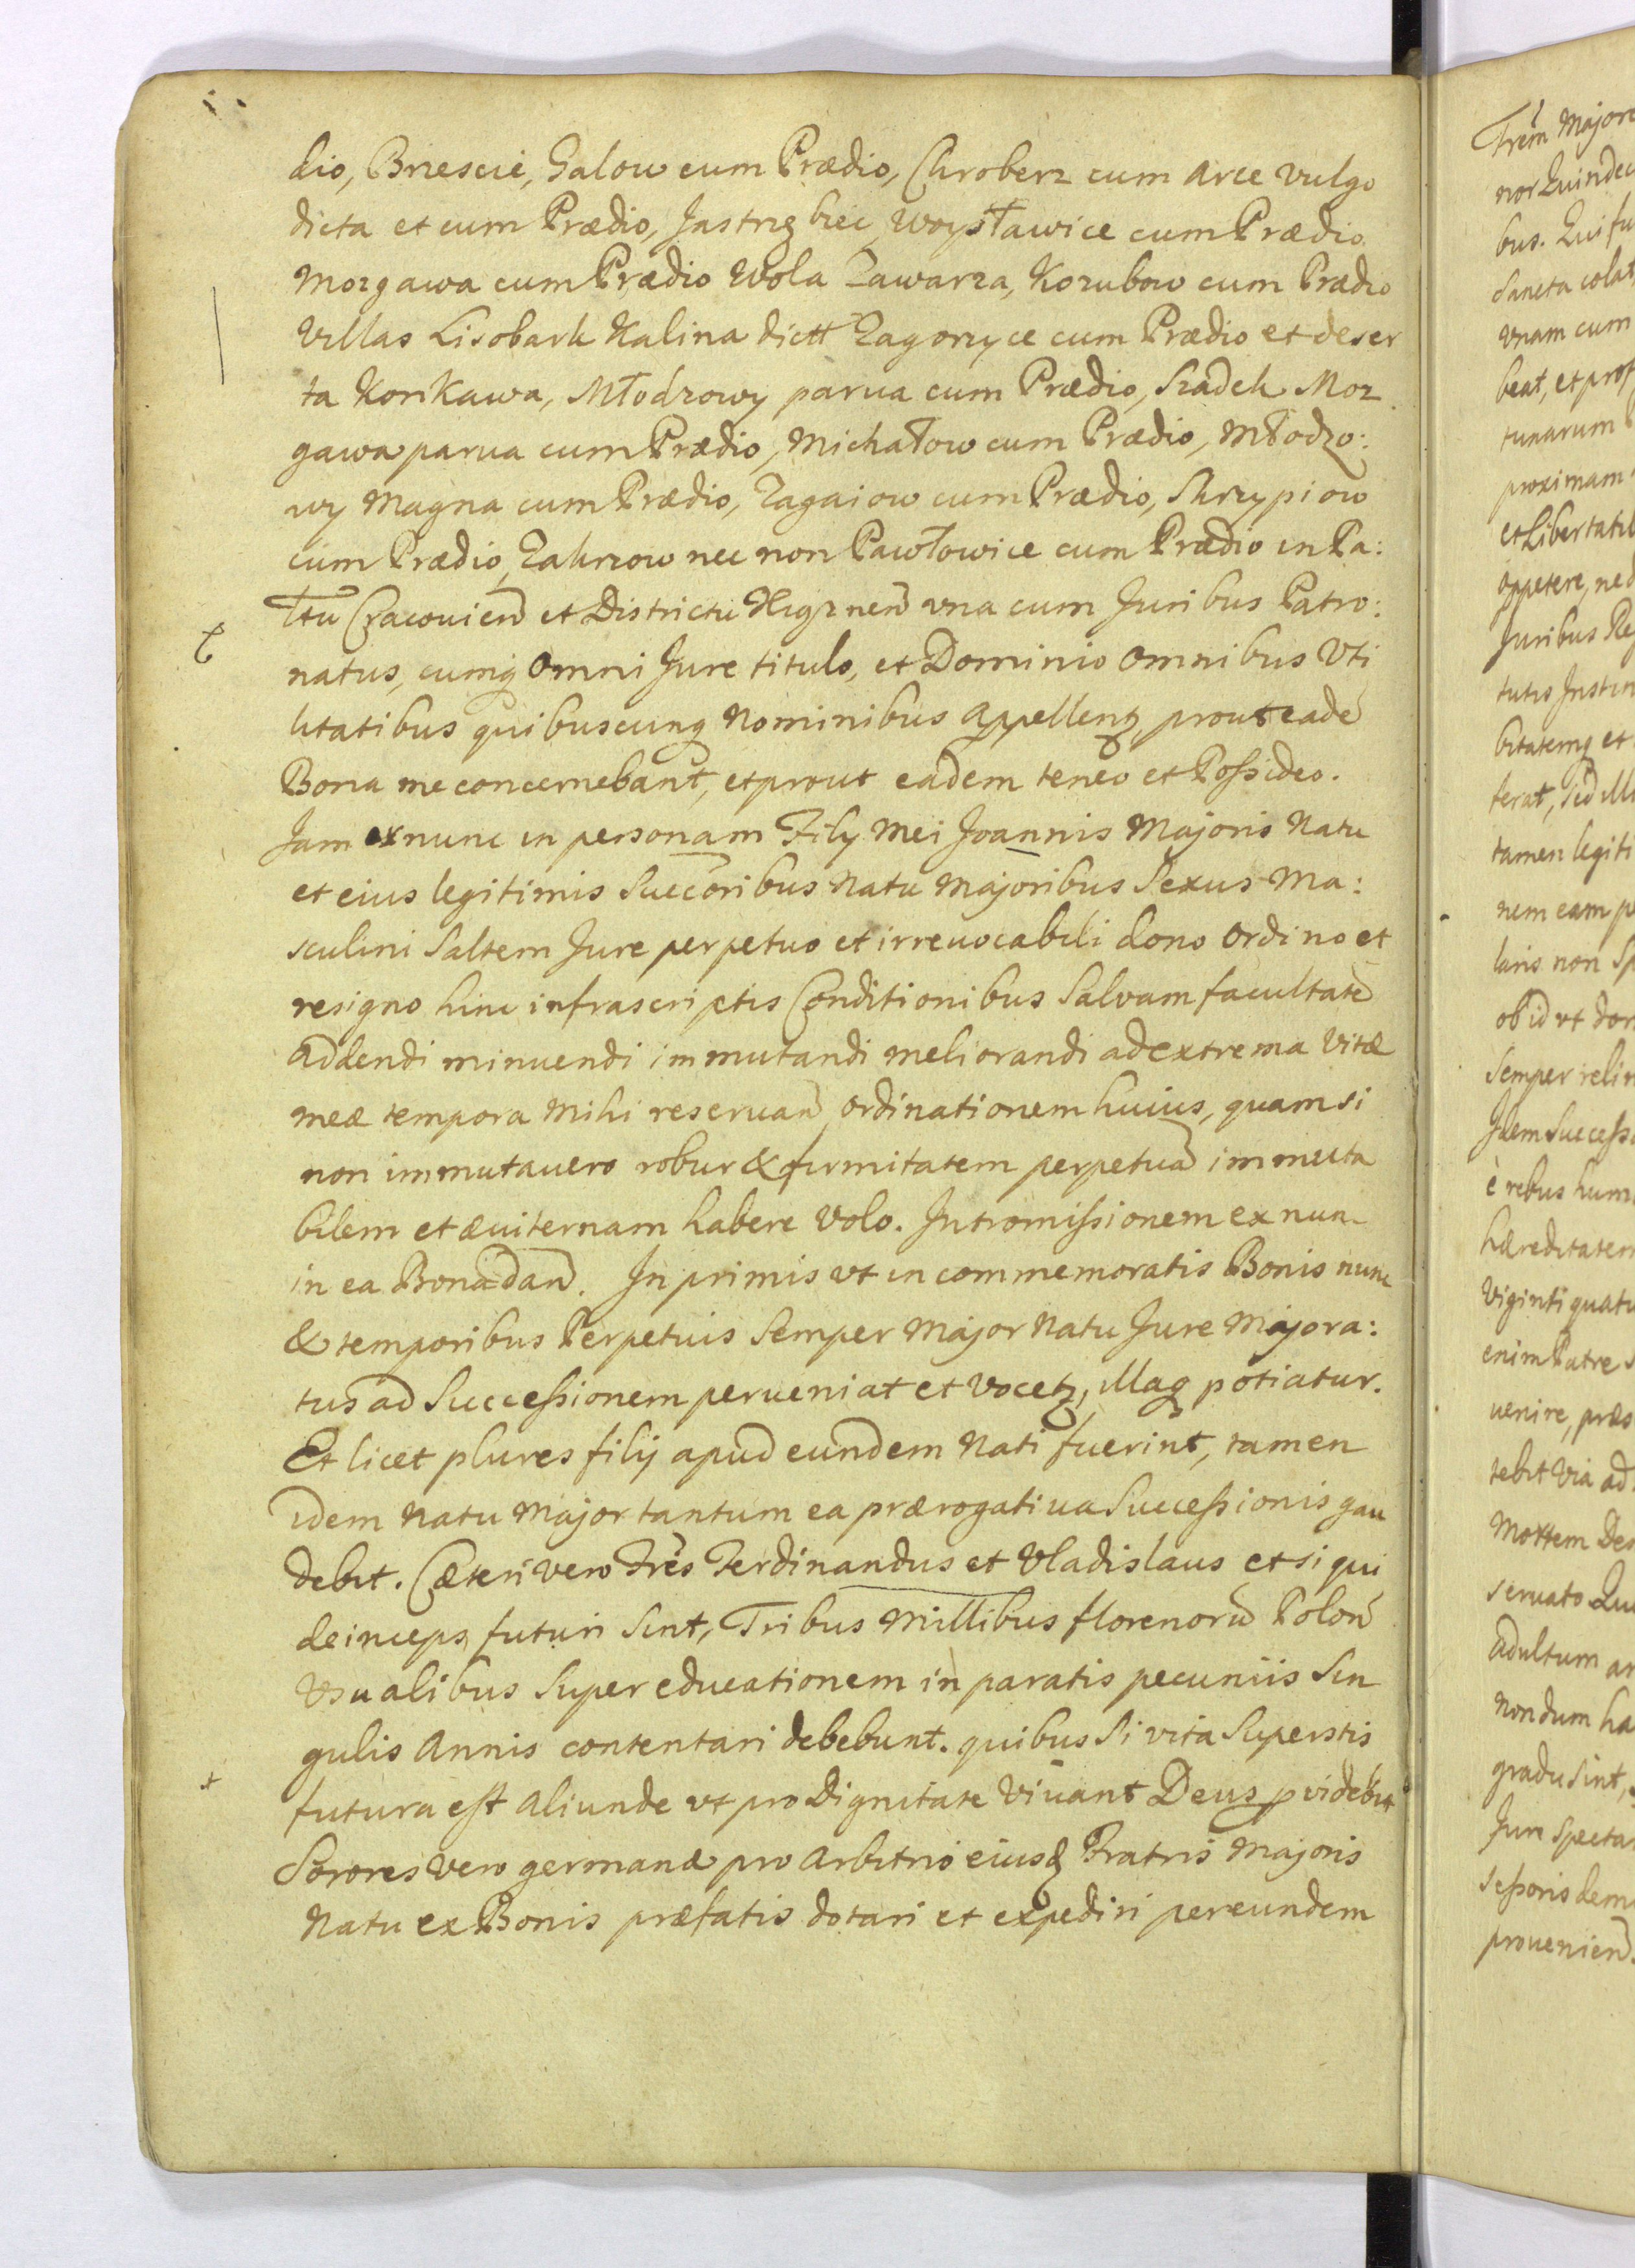 dio, Brzescie, Galow cum Prædio, Chroberz cum Arce vulgo
dicta et cum Prædio, Jastrzębiec, Woysławice cum Prædio
Mozgawa cum Prædio Wola Zawarza, Kozubow cum Prædio
Villas Lisobark Kalina dictt Zagorzyce cum Prædio et deser
ta Konikawa, Młodzowy parua cum Prædio, Sradek Moz
gawa parua cum Prædio, Michałow cum Prædio, Młodzo:
wy Magna cum Prædio, Zagaiow cum Prædio, Skrzypiow
cum Prædio, Zakrzow nec non Pawłowice cum Prædio in Pa:
ltū Cracouien̄ et Districtu nen̄ vna cum Juribus Patro:
natus, cumq Omni Jure titulo, et Dominio omnibus Vti
litatibus quibuscunq Nominibus appellentꝫ prout eadē
Bona me concernebant, et prout eadem teneo et Possideo.
Jam ex nunc in personam Filij Mei Joannis Majoris Natu
et eius legitimis Succ̄oribus Natu Majoribus Sexus Ma:
sculini Saltem Jure perpetuo et irreuocabili dono Ordino et
resigno hinc infrascriptis Conditionibus Salvam facultatē
addendi minuendi immutandi meliorandi ad extrema Vitæ
meæ tempora Mihi reseruan̄ Ordinationem huius, quam si
non immutauero robur & firmitatem perpetuā immuta
bilem et æuiternam habere Volo. Intromissionem ex nunc
in ea Bona dan̄. In primis vt in commemoratis Bonis nunc
& temporibus Perpetuis Semper Major Natu Jure Majora:
tus ad Successionem perueniat et Vocetꝫ, illaq potiatur.
Et licet plures filij apud eundem Nati fuerint, tamen
idem Natu Major tantum ea prærogatiua Successionis gau
debit. Cæteri vero Frēs Ferdinandus et Vladislaus et si qui
deinceps futuri Sint, Tribus Millibus florenorū Polon̄
Vsualibus Super educationem in paratis pecuniis Sin
gulis Annis contentari debebunt. quibus Si vita Superstis
futura est Aliunde vt pro Dignitate Viuant Deus pvidebit
Sorores vero germanæ pro Arbitrio eiusd Fratris Majoris
Natu ex Bonis præfatis dotari et expediri per eundem
Frēm Majore
nor Quindec
bus. Qui fu
Sancta colat
vnam cum
beat, et prof
tunarum
proximam
et Libertatib
oppetere, ned
Juribus Re
tutis Instin
bitatemq et
terat, sed illi
tamen legiti
nem eam p
laris non Sp
ob id vt don
Semper relin
Idem Successo
è rebus hum
hæreditatem
Viginti quatu
enim Patre s
uenire, præs
tebit Via ad
Mortem
seruato Qu
Adultum an
Nondum ha
gradu Sint,
Jure Specta
sessoris dem
prouenien̄.